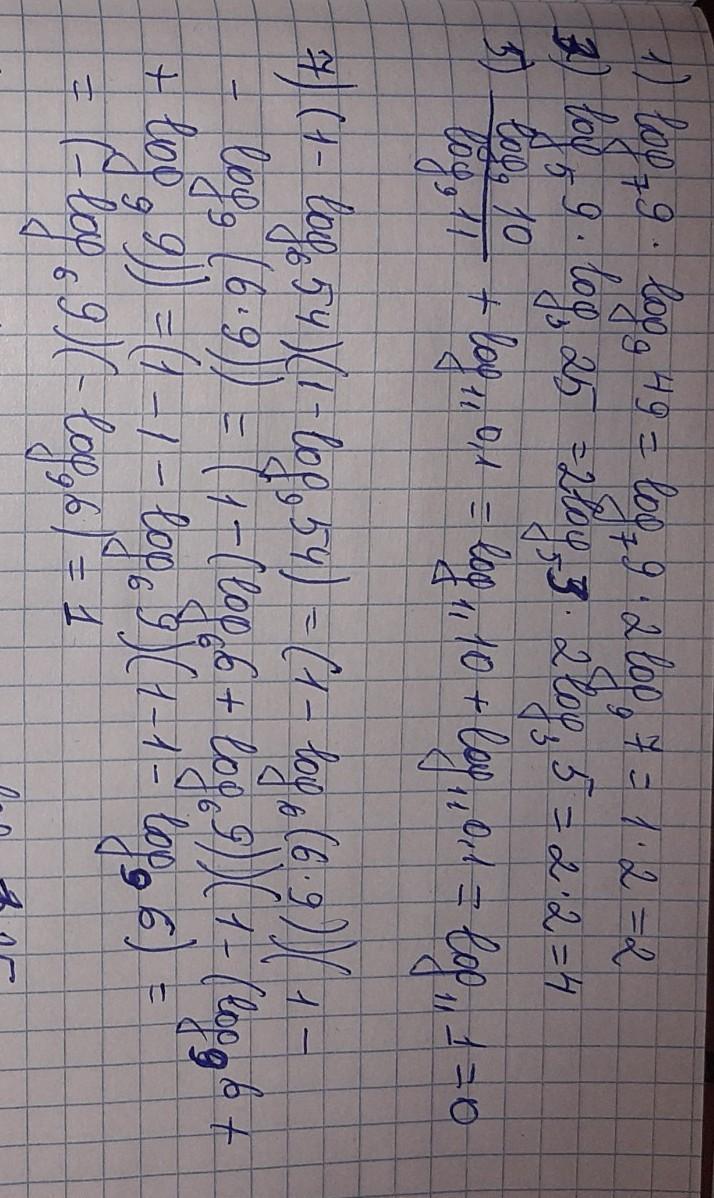 1) log₇9 · log₉49 = log₇9 · 2log₉7 = 1·2 = 2
3) log₅9 · log₃25 = 2log₅3 · 2log₃5 = 2·2 = 4
5) log₉10 / log₉11 + log₁₁0,1 = log₁₁10 + log₁₁0,1 = log₁₁1 = 0
7) (1 - log₆54)(1 - log₉54) = (1 - log₆(6·9))(1 -
- log₉(6·9)) = (1 - (log₆6 + log₆9))(1 - (log₉6 +
+ log₉9)) = (1 - 1 - log₆9)(1 - 1 - log₉6) =
= (- log₆9)(- log₉6) = 1